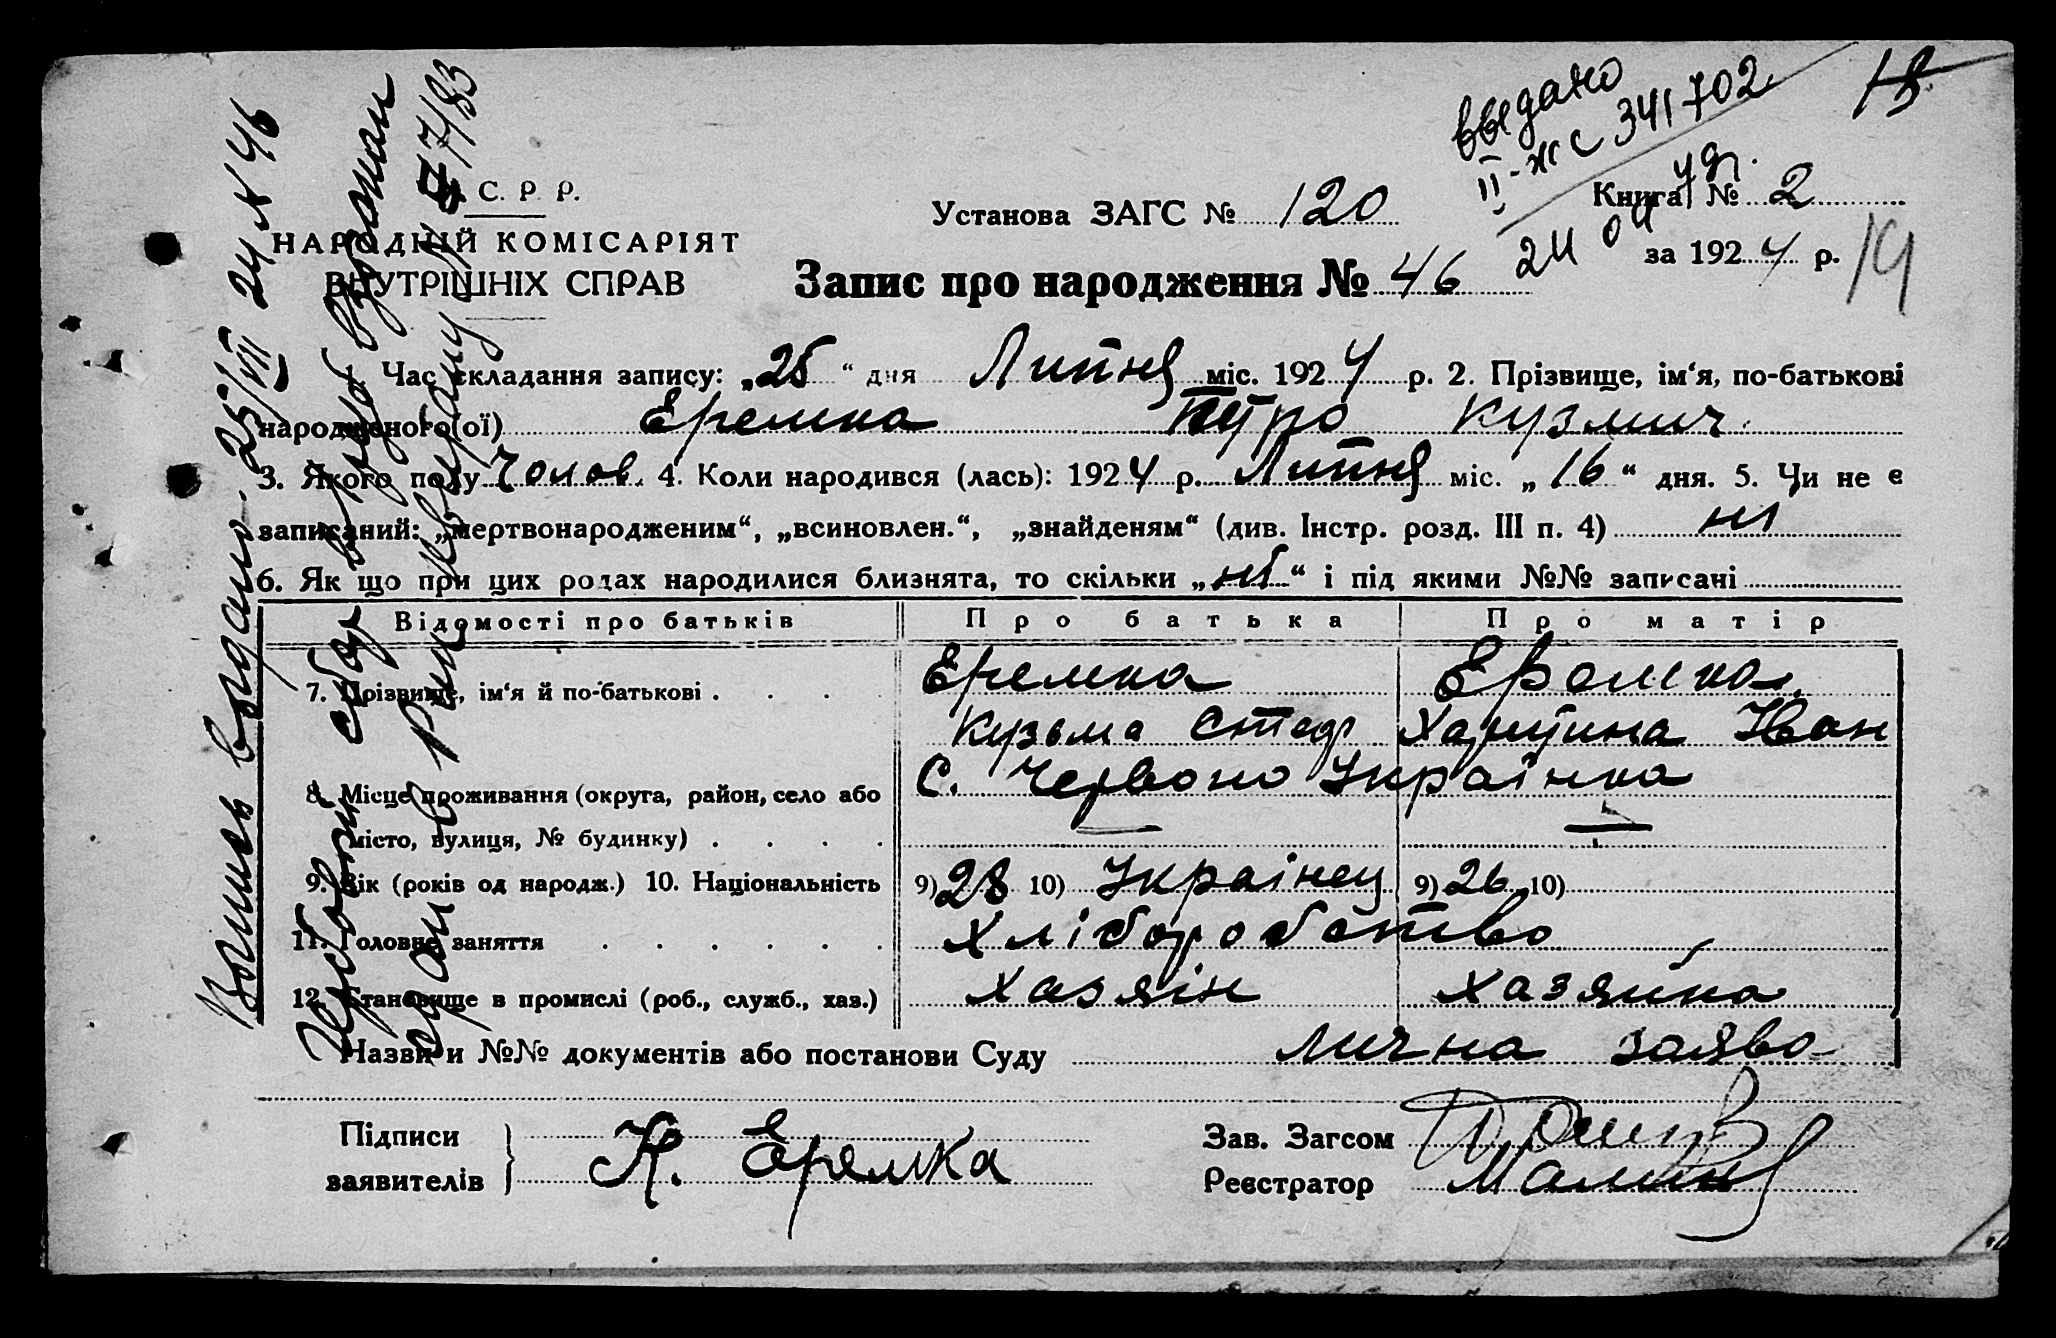 С. Р. Р.
НАРОДНІЙ КОМІСАРІЯТ
ВНУТРІШНІХ СПРАВ
Установа ЗАГС № 120
выдано
II-ЖС 341702
Книга № 2
за 1924 р.
18
19
Запис про народження № 46
Час складання запису: „25“ дня Липня міс. 1924 р. 2. Прізвище, ім‘я, по-батькові
народженого(ої) Еремка Петро Кузмич
3. Якого полу Чолов. 4. Коли народився (лась): 1924 р. Липня міс. „16“ дня. 5. Чи не є
записаний: „мертвонародженим“, „всиновлен.“, „знайденям“ (див. Інстр. розд. III п. 4) ні
6. Як що при цих родах народилися близнята, то скільки „ні“ і під якими №№ записані
Відомості про батьків Про батька Про матір
7. Прізвище, ім‘я й по-батькові . . . . Еремка Еремка
Кузьма Стеф Харитина Иван
8. Місце проживання (округа, район, село або С. Червоно Українка
місто, вулиця, № будинку) . . . . — —
9. Вік (років од народж.) 10. Національність 9) 28 10) Українец 9) 26 10)
11. Головне заняття . . . . . . Хліборобство
12. Становище в промислі (роб., служб., хаз.) хазяїн хазяйка
Назви и №№ документів або постанови Суду лична заява
Підписи
заявителів } К. Еремка
Зав. Загсом
Реєстратор
Выпись выдано 25/VII 24 № 46